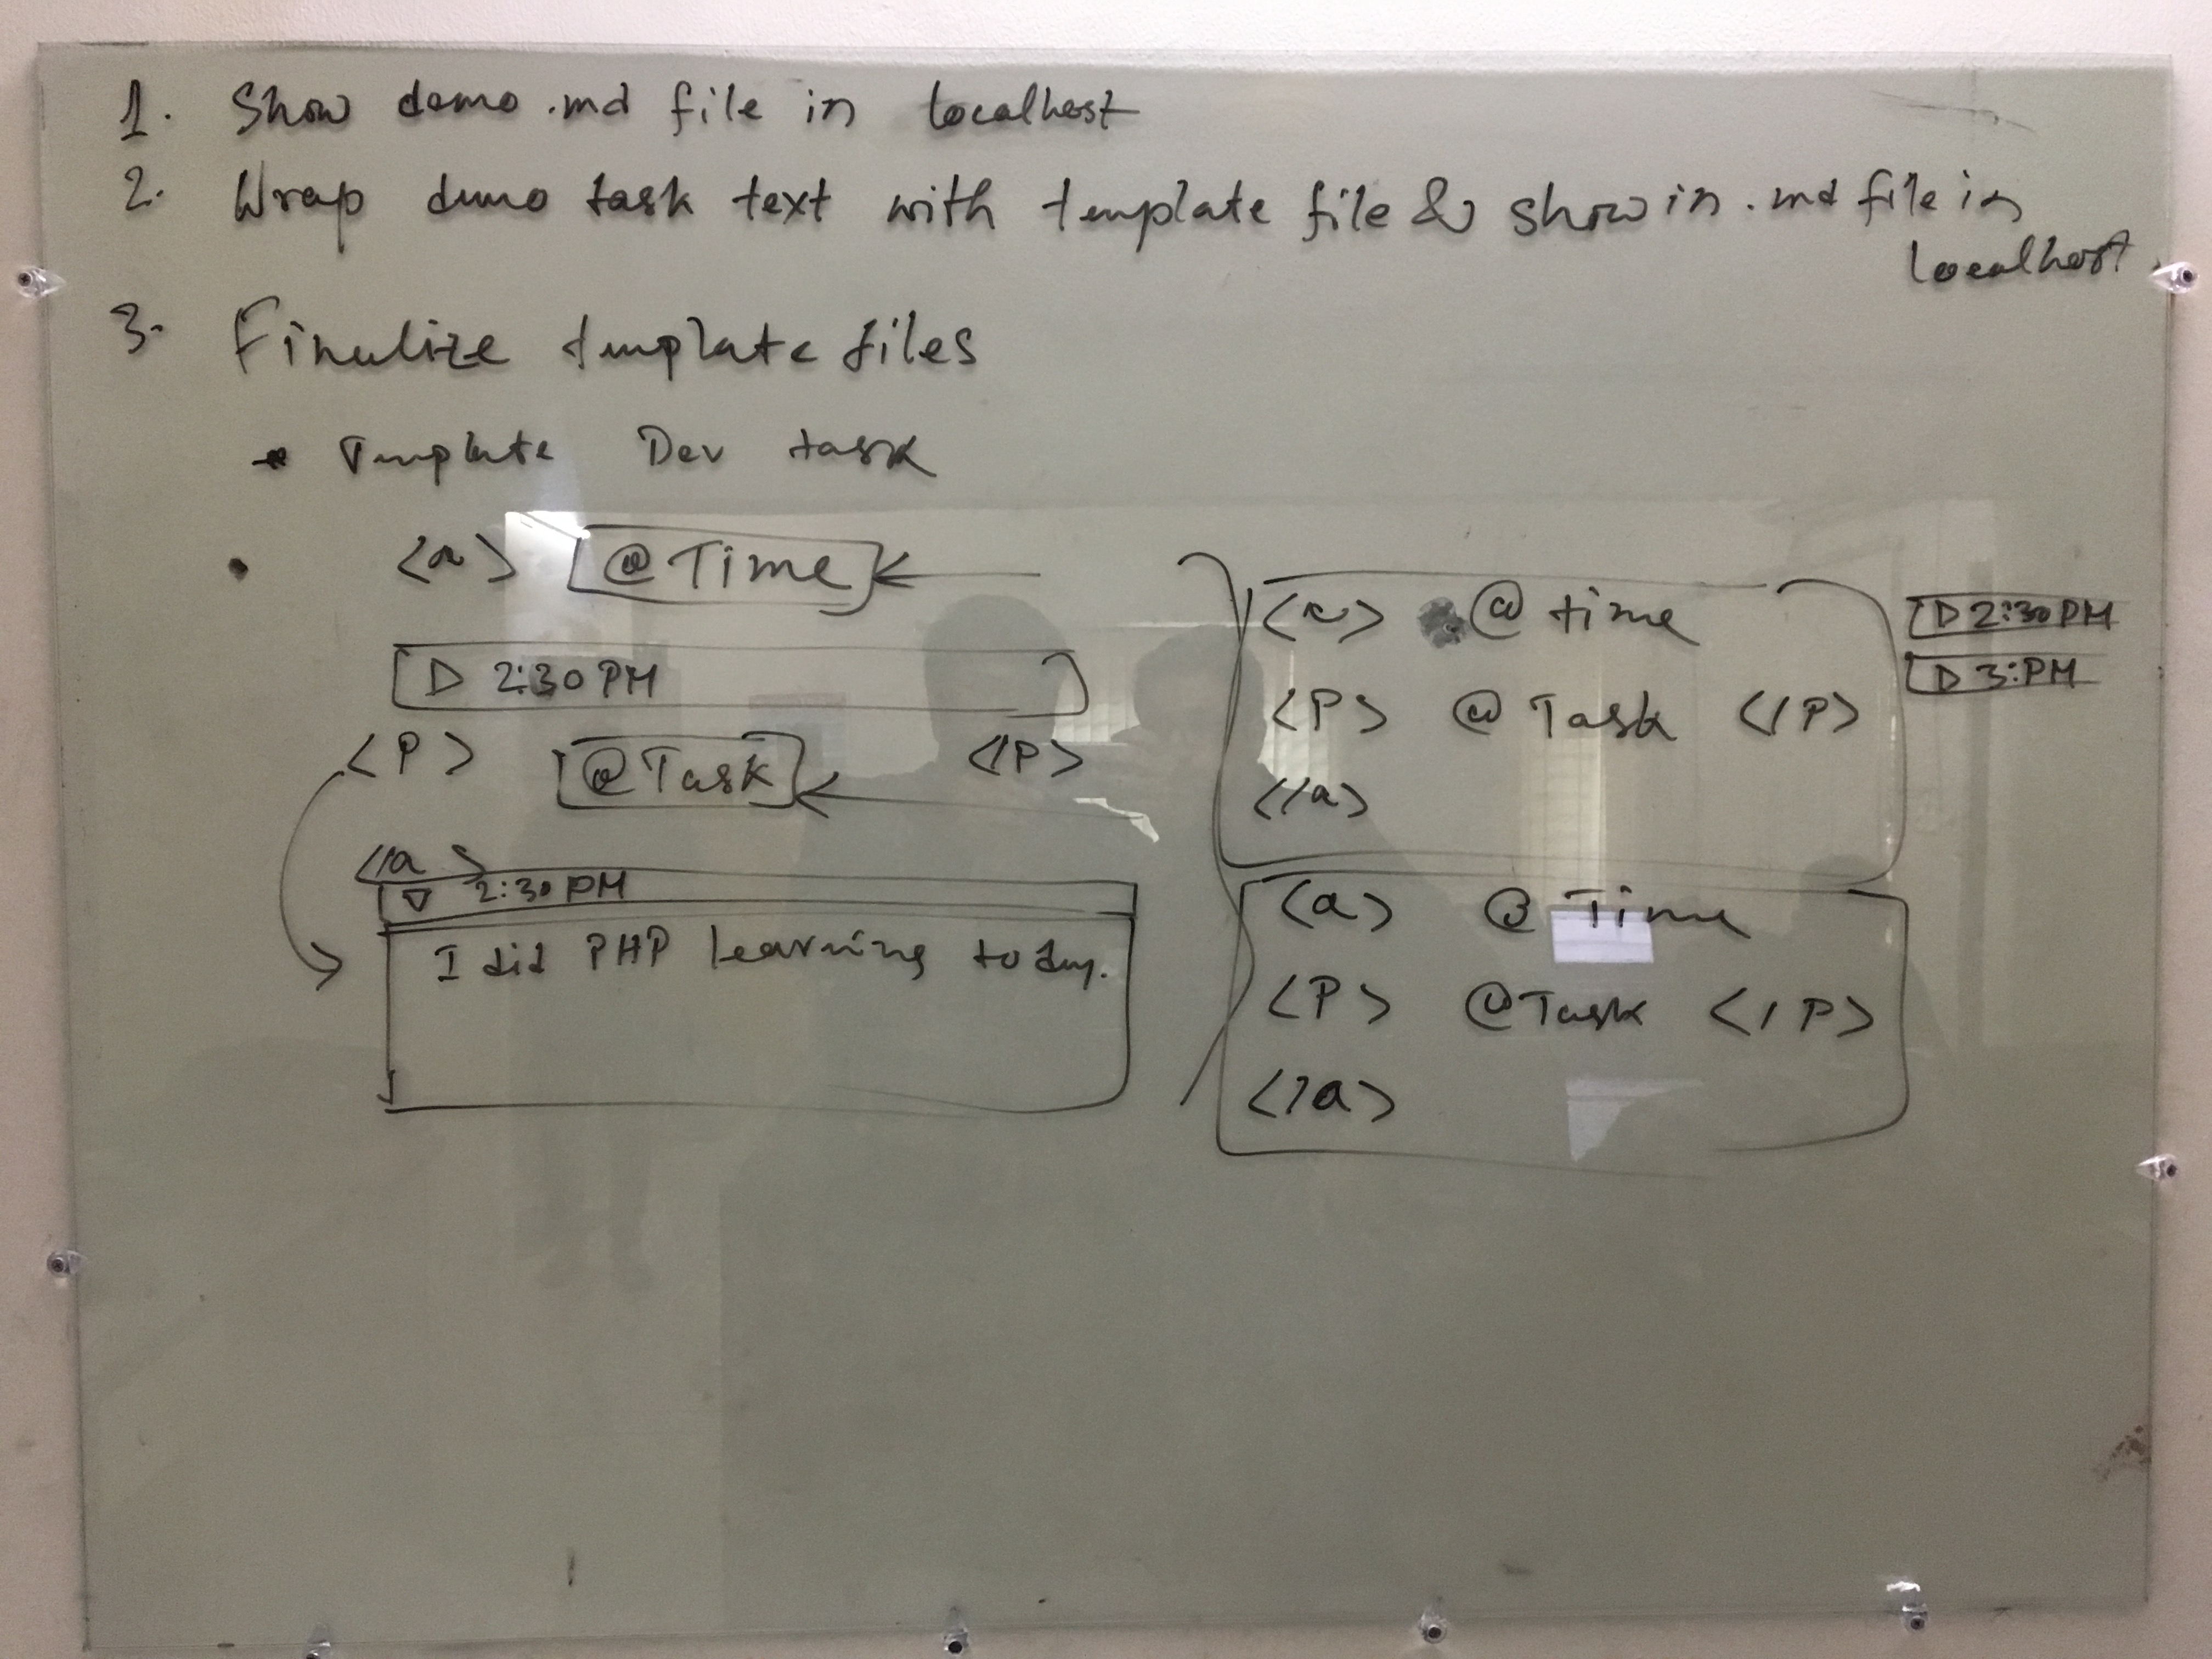 1. Show demo .md file in localhost
2. Wrap demo task text with template file & show in .md file in
localhost
3. Finalize template files
* Template Dev task
• <a> @Time
▷ 2:30 PM
<P> @Task </P>
</a>
▽ 2:30 PM
I did PHP learning today.
<a> @ time
<P> @ Task </P>
</a>
<a> @ Time
<P> @Task </P>
</a>
▷ 2:30 PM
▷ 3:PM